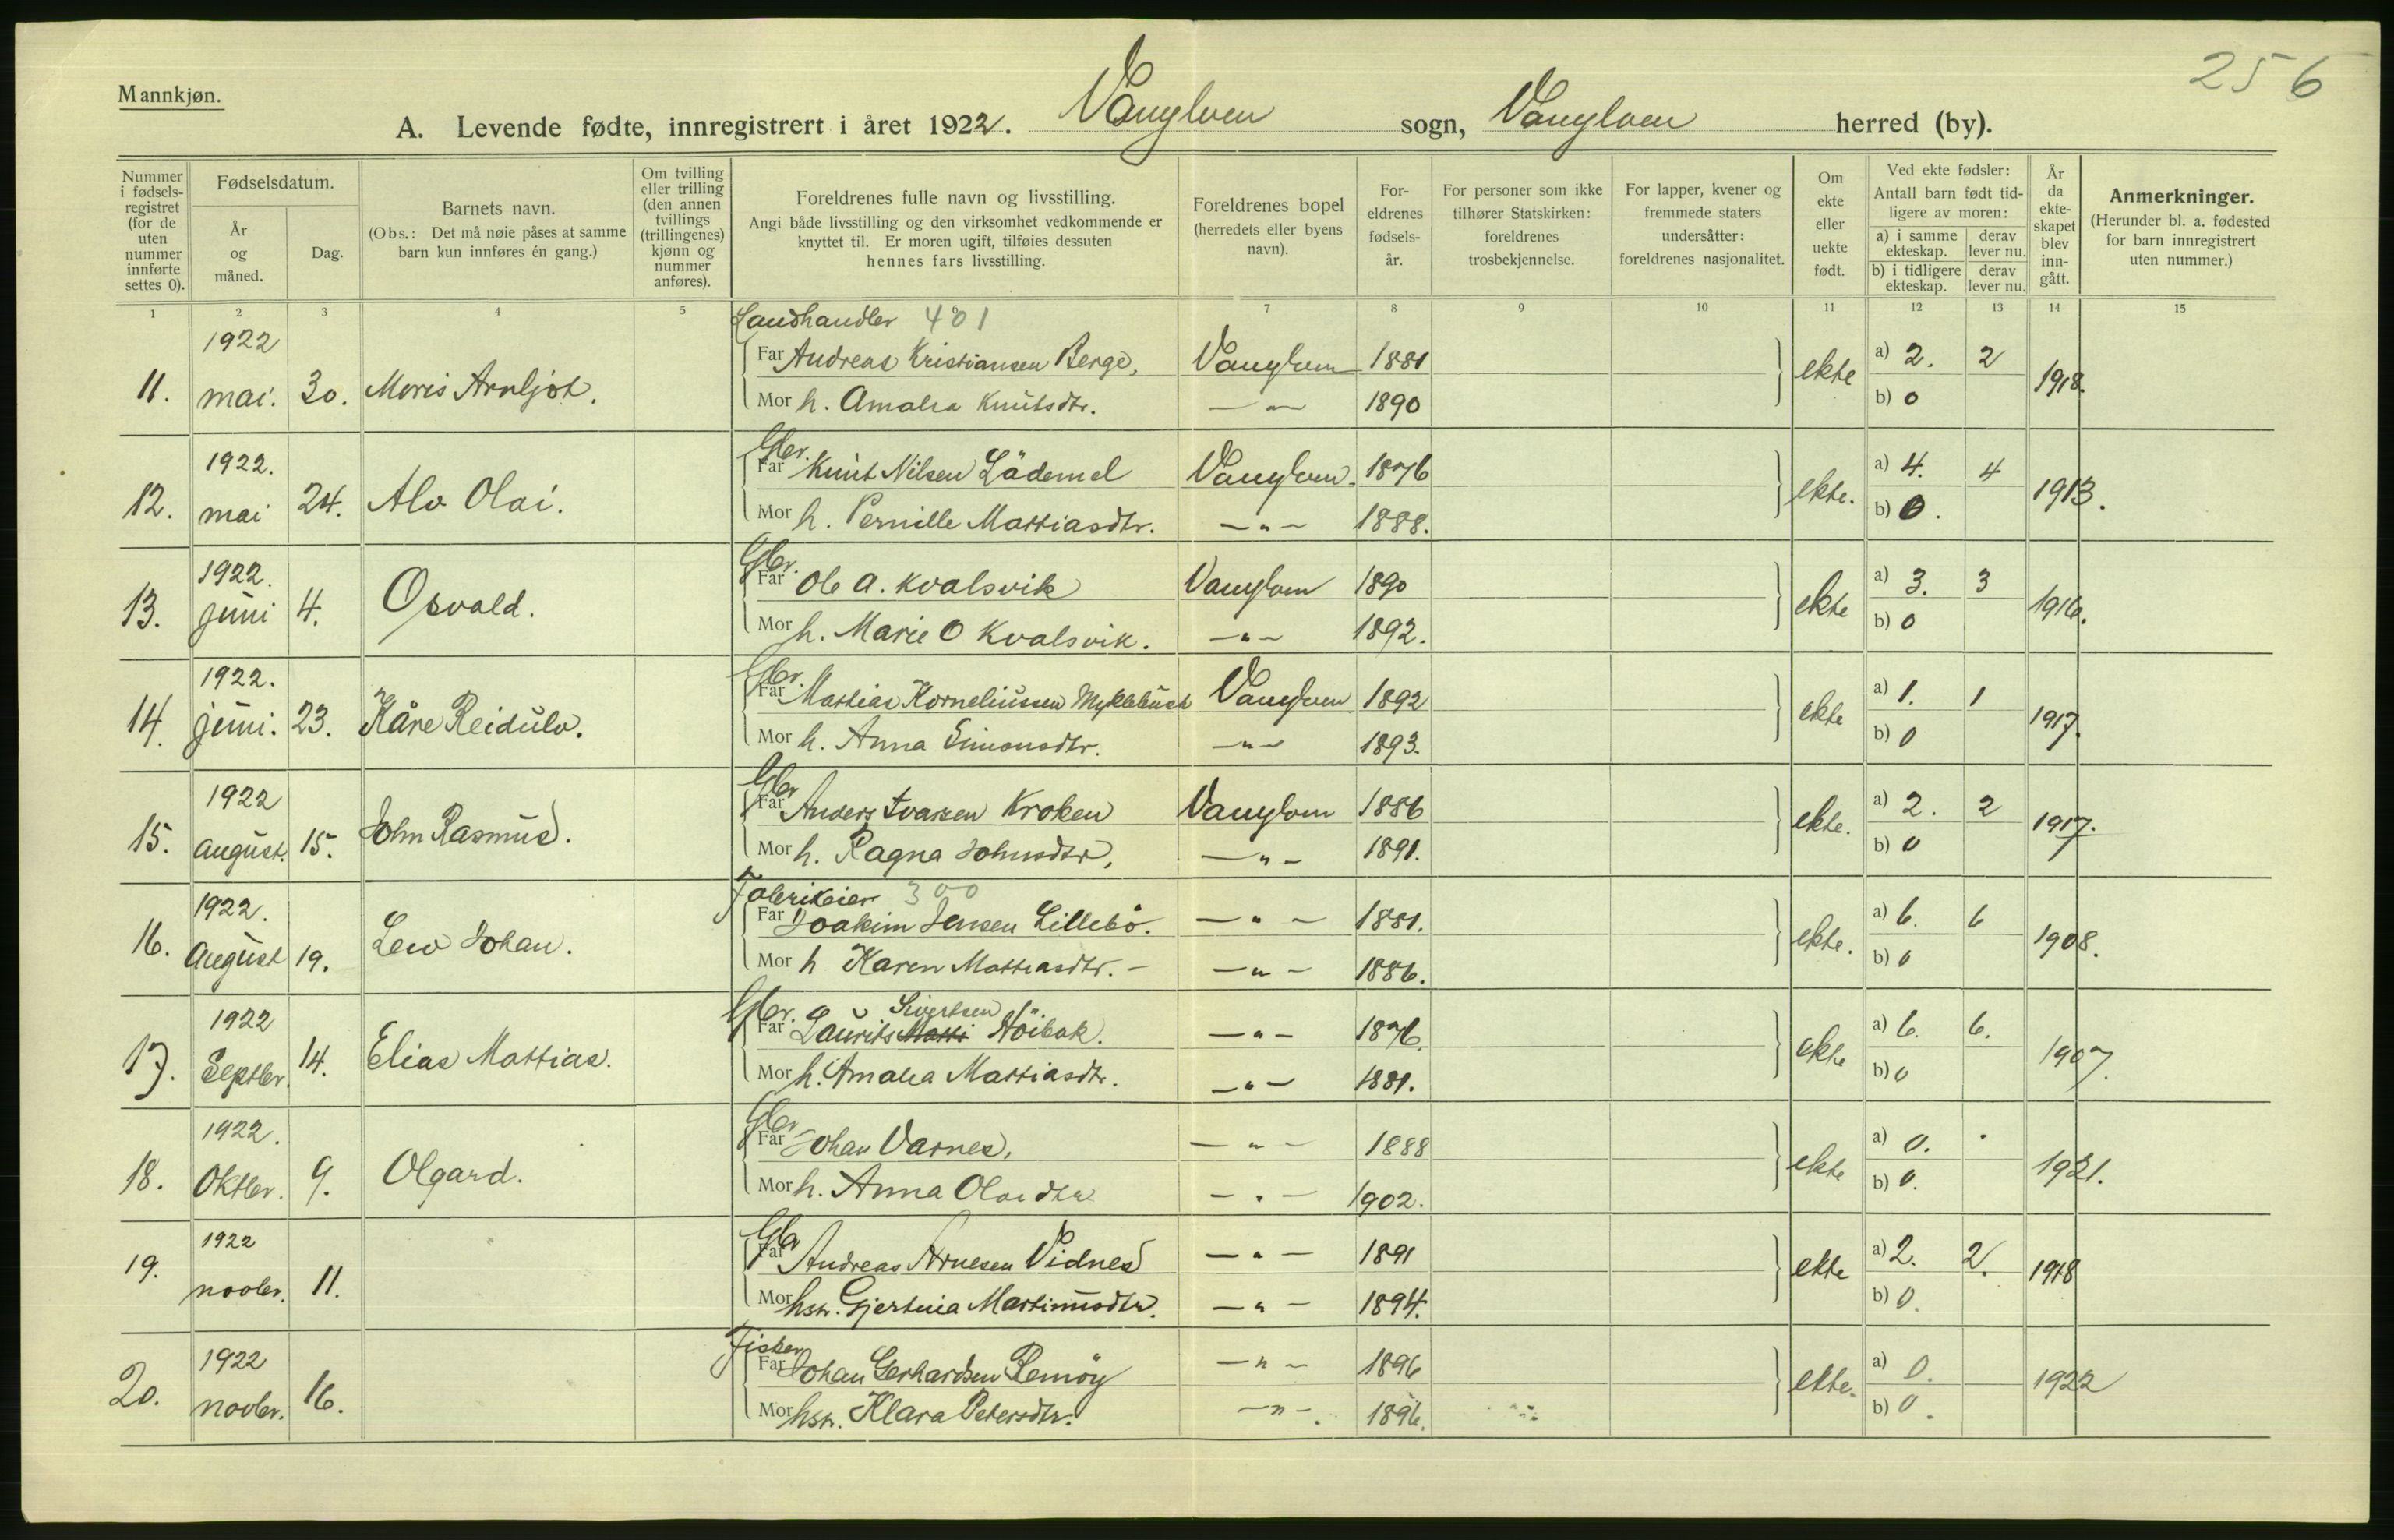 256
Mannkjøn.
A. Levende fødte, innregistrert i året 1922. Vanylven sogn, Vanylven herred (by).
Nummer i fødsels-registret (for de uten nummer innførte settes 0).
Fødselsdatum.
År og måned.
Dag.
Barnets navn.
(Obs.: Det må nøie påses at samme barn kun innføres én gang.)
Om tvilling eller trilling (den annen tvillings (trillingenes) kjønn og nummer anføres).
Foreldrenes fulle navn og livsstilling.
Angi både livsstilling og den virksomhet vedkommende er knyttet til. Er moren ugift, tilføies dessuten hennes fars livsstilling.
Foreldrenes bopel (herredets eller byens navn).
For-eldrenes fødsels-år.
For personer som ikke tilhører Statskirken: foreldrenes trosbekjennelse.
For lapper, kvener og fremmede staters undersåtter: foreldrenes nasjonalitet.
Om ekte eller uekte født.
Ved ekte fødsler: Antall barn født tid-ligere av moren:
a) i samme ekteskap. derav lever nu.
b) i tidligere ekteskap. derav lever nu.
År da ekte-skapet blev inn-gått.
Anmerkninger.
(Herunder bl. a. fødested for barn innregistrert uten nummer.)
1 2 3 4 5 6 7 8 9 10 11 12 13 14 15
Landhandler 401
11. 1922 mai. 30. Moris Arnljot.
Far Andreas Kristiansen Berge, Vanylven 1881 ekte a) 2. 2 1918.
Mor h. Amalia Knutsdtr. — " — 1890 b) 0
Gbr.
12. 1922. mai 24. Alv Olai.
Far Knut Nilsen Lädemel Vanylven. 1876 ekte. a) 4. 4 1913.
Mor h. Pernille Mattiasdtr. — " — 1888. b) 0.
Gbr.
13. 1922. juni 4. Osvald.
Far Ole A. Kvalsvik Vanylven 1890 ekte a) 3. 3 1916.
Mor h. Marie O Kvalsvik. — " — 1892. b) 0
Gbr.
14. 1922. juni. 23. Kåre Reidulv.
Far Mattias Korneliussen Myklebust Vanylven 1892 ekte a) 1. 1 1917.
Mor h. Anna Simonsdtr. — " — 1893. b) 0
Gbr
15. 1922 august. 15. John Rasmus.
Far Anders Ivarsen Kroken Vanylven 1886 ekte. a) 2. 2 1917.
Mor h. Ragna Johnsdtr, — " — 1891. b) 0
Fabrikeier 300
16. 1922. August 19. Leiv Johan.
Far Joakim Jensen Lillebö. — " — 1881. ekte. a) 6. 6 1908.
Mor h Karen Mattiasdtr. — — " — 1886. b) 0
Gbr. Sivertsen
17. 1922 Septbr. 14. Elias Mattias.
Far Laurits Matti Nöibak. — " — 1876. ekte a) 6. 6. 1907.
Mor h. Amalia Mattiasdtr. — " — 1881. b) 0
Gbr
18. 1922. Oktbr. 9. Olgard.
Far Johan Varnes, — " — 1888 ekte a) 0. 1921.
Mor h. Anna Olai dtr — " — 1902. b) 0.
Gbr
19. 1922 novbr. 11.
Far Andreas Arnesen Vidnes — " — 1891 ekte a) 2. 2. 1918
Mor hstr. Gjertina Martinusdtr. — " — 1894. b) 0.
Fisker
20. 1922 novbr. 16.
Far Johan Gerhardsen Remöy — " — 1896 ekte. a) 0. 1922
Mor hstr. Klara Petersdtr. — " —. 1896. b) 0.